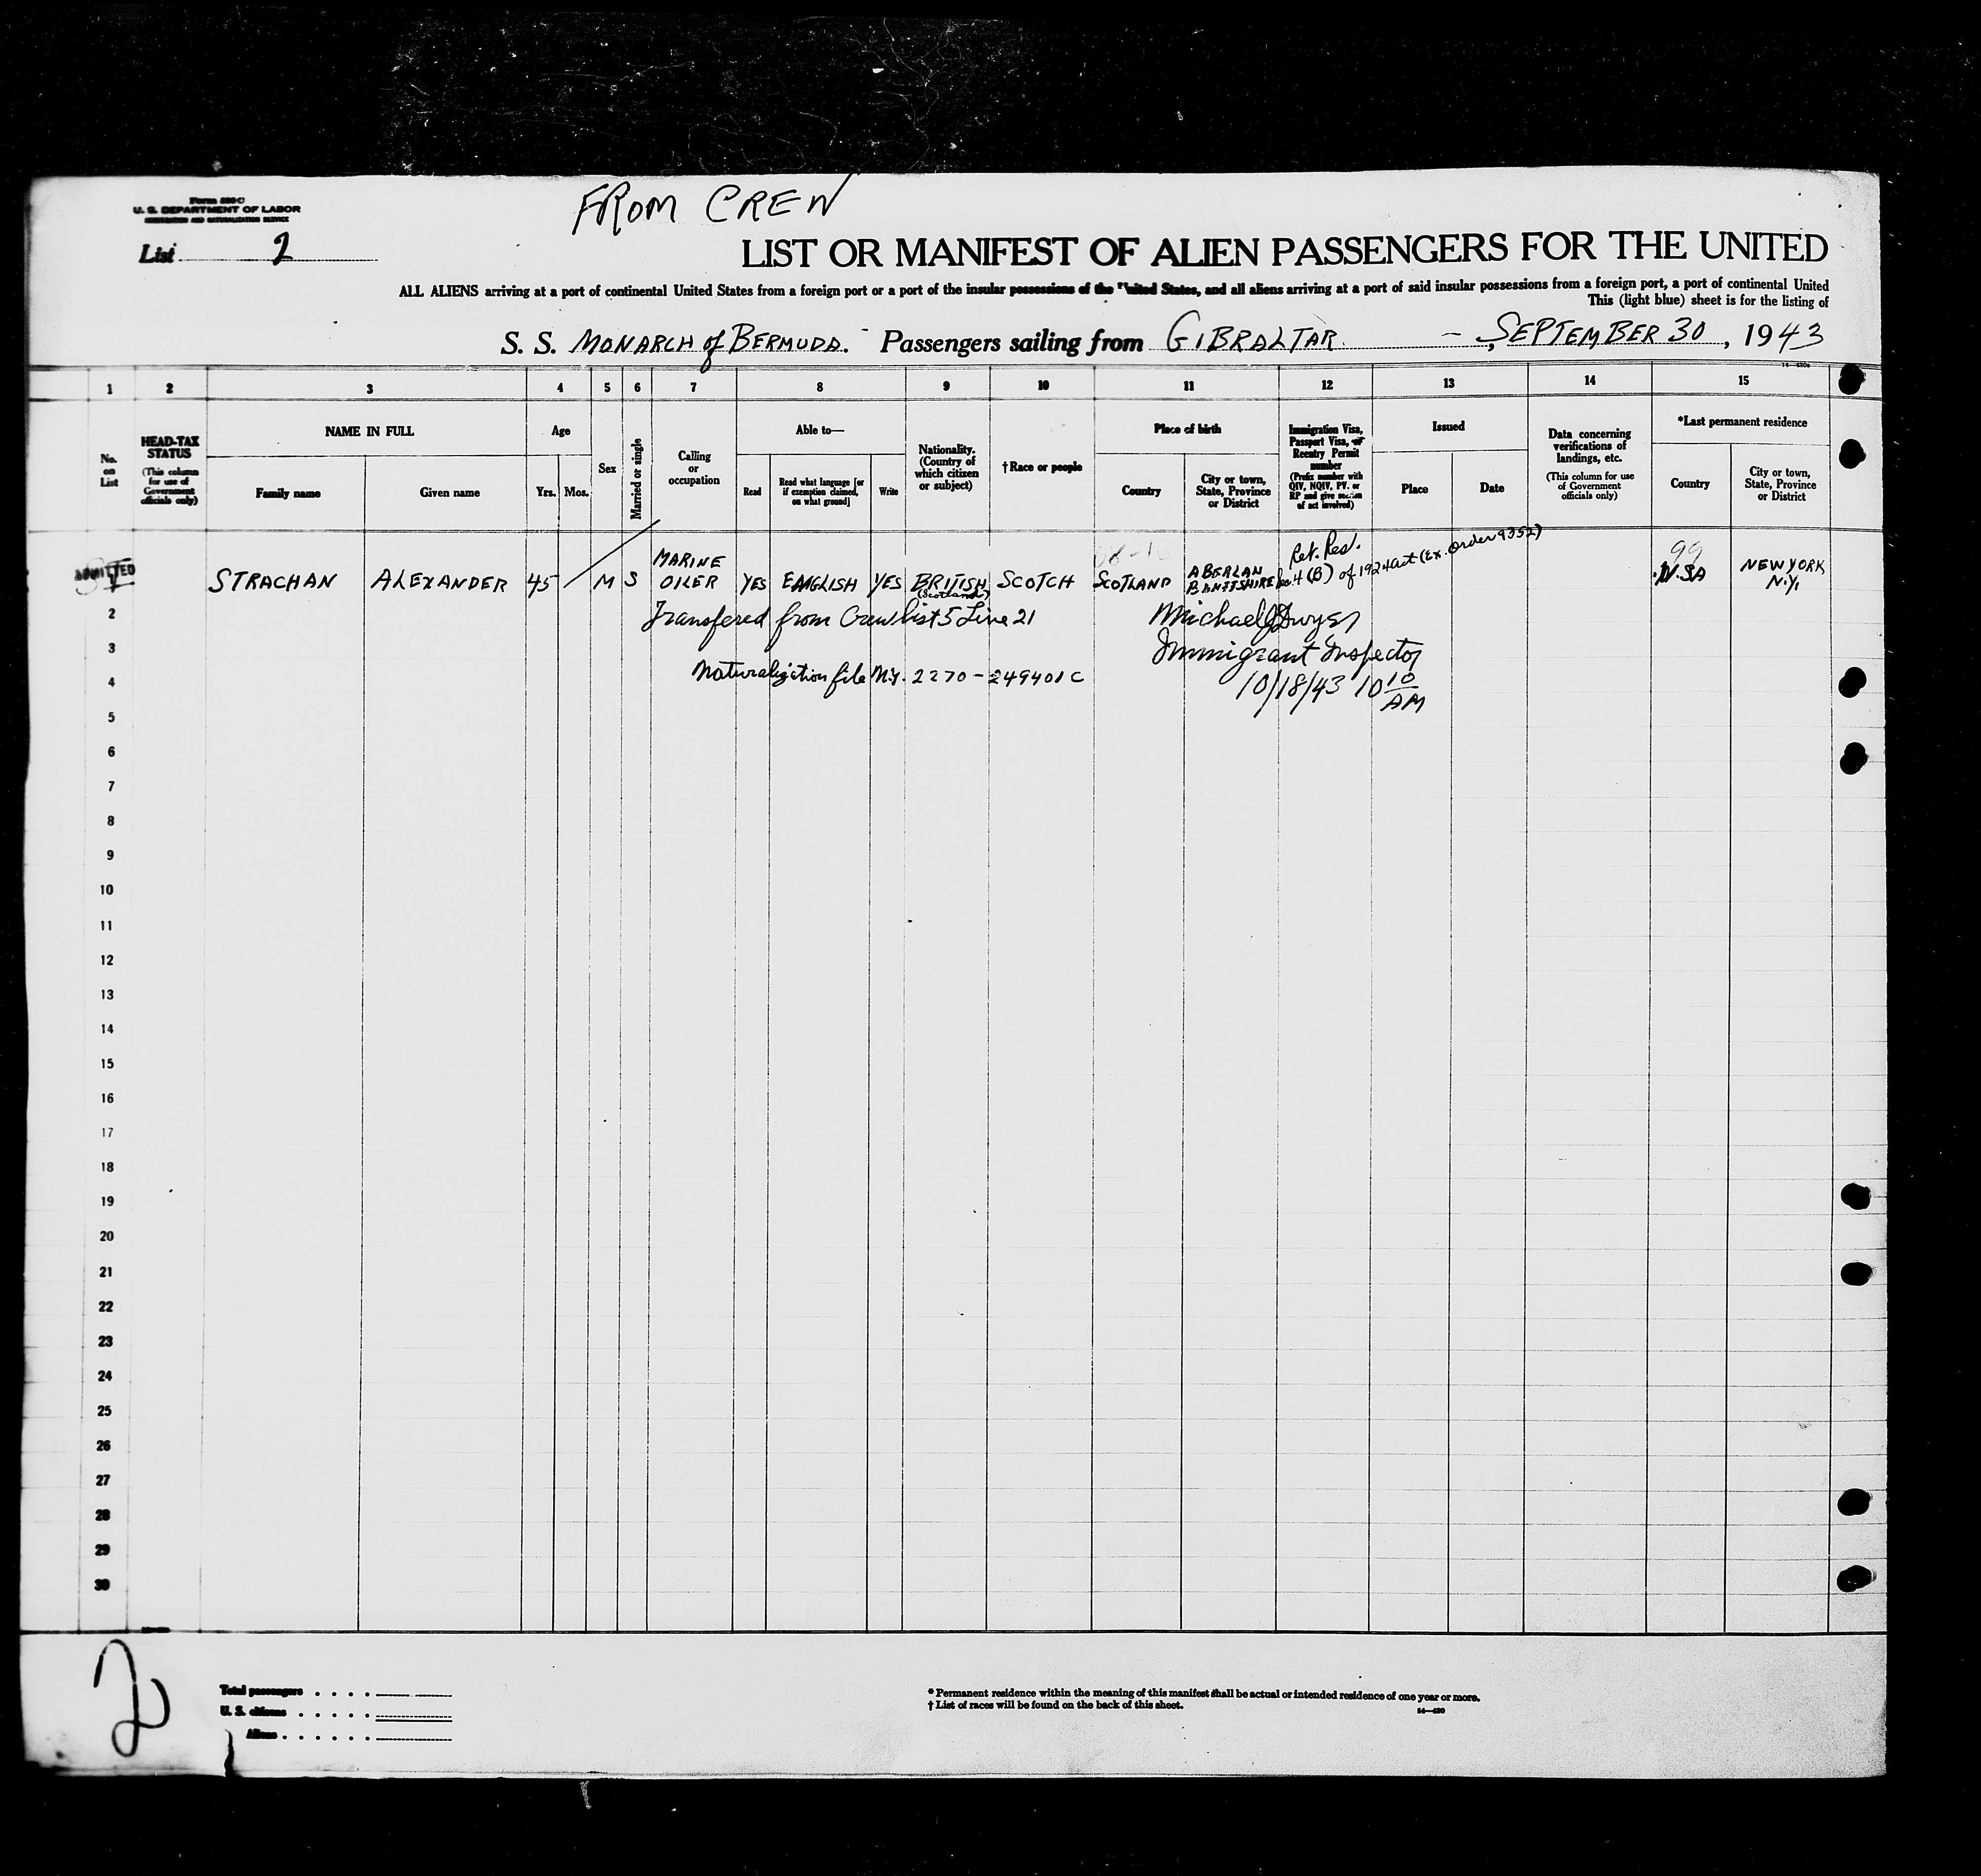 Form 630C
U. S. DEPARTMENT OF LABOR
IMMIGRATION AND NATURALIZATION SERVICE
FROM CREW
List 2
LIST OR MANIFEST OF ALIEN PASSENGERS FOR THE UNITED
ALL ALIENS arriving at a port of continental United States from a foreign port or a port of the insular possessions of the United States, and all aliens arriving at a port of said insular possessions from a foreign port, a port of continental United
This (light blue) sheet is for the listing of
S. S. MONARCH of BERMUDA. Passengers sailing from GIBRALTAR. - SEPTEMBER 30, 1943
1 2 3 4 5 6 7 8 9 10 11 12 13 14 15
No. on List
HEAD-TAX STATUS (This column for use of Government officials only)
NAME IN FULL
Family name
Given name
Age
Yrs. Mos.
Sex
Married or single
Calling or occupation
Able to—
Read
Read what language [or if exemption claimed, on what ground]
Write
Nationality. (Country of which citizen or subject)
†Race or people
Place of birth
Country
City or town, State, Province or District
Immigration Visa, Passport Visa, or Reentry Permit number (Prefix number with QIV, NQIV, PV, or RP and give section of act involved)
Issued
Place
Date
Data concerning verifications of landings, etc. (This column for use of Government officials only)
*Last permanent residence
Country
City or town, State, Province or District
ADMITTED
STRACHAN ALEXANDER 45 M S MARINE OILER YES ENGLISH YES BRITISH (Scotland) SCOTCH SCOTLAND ABERLAN BANFFSHIRE Ret. Res. Sec. 4 (B) of 1924 Act (Ex. Order 9352) 99 U.S.A NEW YORK N.Y.
2 Transfered from Crew list 5 Line 21 Michael J Dwyer
3 Immigrant Inspector
4 Naturalization file N.Y. 2270-249401C 10/18/43 10 10 AM
5
6
7
8
9
10
11
12
13
14
15
16
17
18
19
20
21
22
23
24
25
26
27
28
29
30
2
Total passengers
U. S. citizens
Aliens
* Permanent residence within the meaning of this manifest shall be actual or intended residence of one year or more.
† List of races will be found on the back of this sheet.